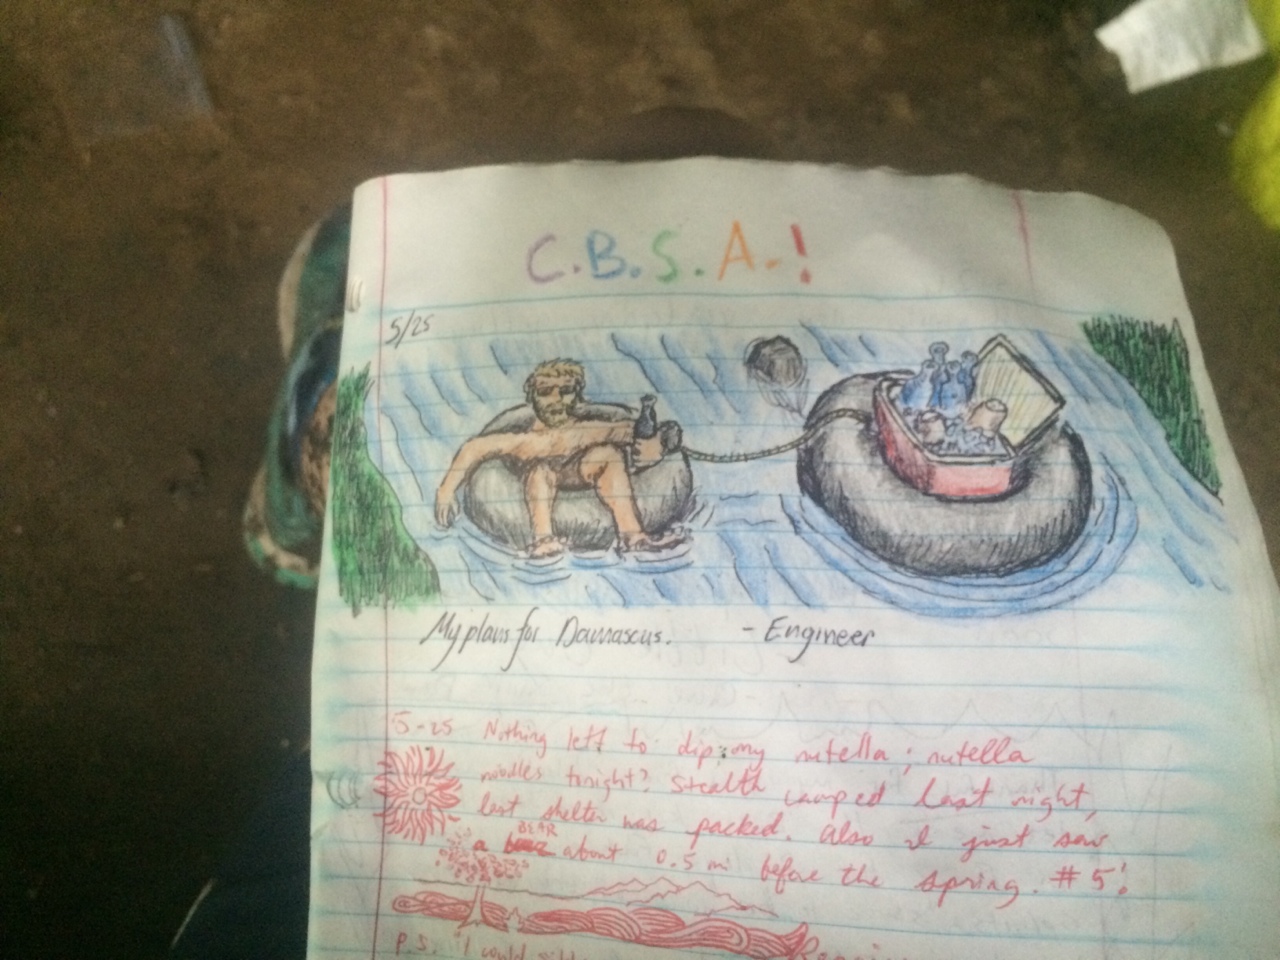 C.B.S.A.!
5/25
My plans for Damascus. - Engineer
5-25 Nothing left to dip my nutella; nutella
noodles tonight? Stealth camped last night,
last shelter was packed. Also I just saw
BEAR
a about 0.5 mi before the spring. #5!
P.S. I could